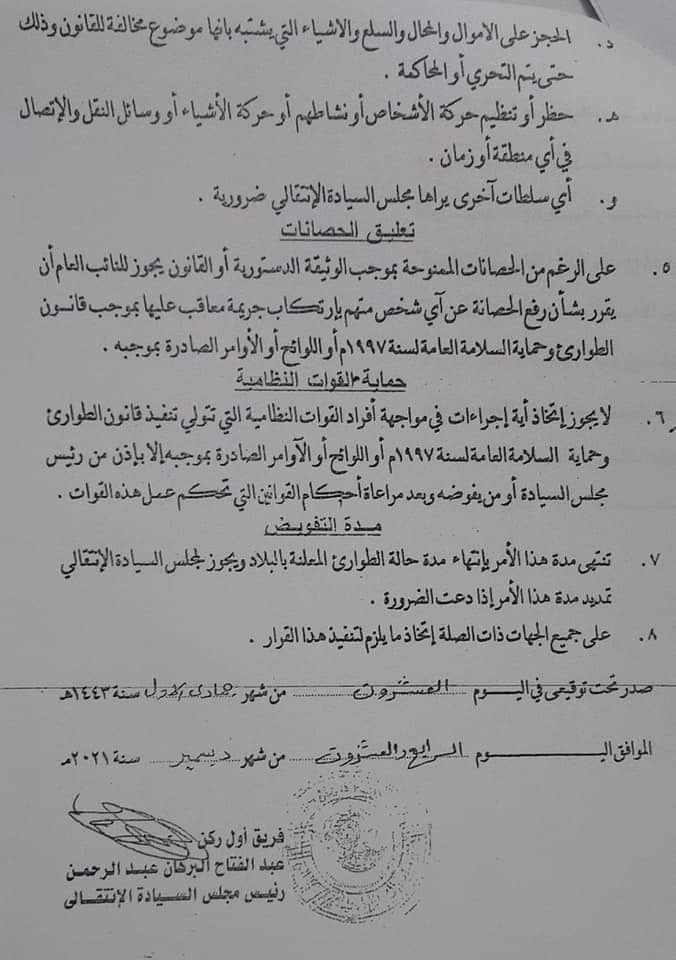 د. الحجز على الاموال والمحال والسلع والاشياء التي يشتبه بانها موضوع مخالفة للقانون وذلك
حتى يتم التحري أو المحاكمة .
هـ. حظر أو تنظيم حركة الأشخاص أو نشاطهم أو حركة الأشياء أو وسائل النقل والإتصال
في أي منطقة أو زمان .
و. أي سلطات آخرى يراها مجلس السيادة الإنتقالي ضرورية .
تعليق الحصانات
٥. على الرغم من الحصانات الممنوحة بموجب الوثيقة الدستورية أو القانون يجوز للنائب العام أن
يقرر بشأن رفع الحصانة عن آي شخص متهم بإرتكاب جريمة معاقب عليها بموجب قانون
الطوارئ وحماية السلامة العامة لسنة ١٩٩٧م أو اللوائح أو الأوامر الصادرة بموجبه .
حماية القوات النظامية
٦. لا يجوز إتخاذ أية إجراءات في مواجهة أفراد القوات النظامية التي تتولي تنفيذ قانون الطوارئ
وحماية السلامة العامة لسنة ١٩٩٧م أو اللوائح أو الآوامر الصادرة بموجبه إلا بإذن من رئيس
مجلس السيادة أو من يفوضه وبعد مراعاة أحكام القوانين التي تحكم عمل هذه القوات .
مدة التفويض
٧. تنتهي مدة هذا الأمر بإنتهاء مدة حالة الطوارئ المعلنة بالبلاد ويجوز لمجلس السيادة الإنتقالي
تمديد مدة هذا الأمر إذا دعت الضرورة .
٨. على جميع الجهات ذات الصلة إتخاذ ما يلزم لتنفيذ هذا القرار .
صدر تحت توقيعي في اليوم العشرون من شهر جمادى الاول سنة ١٤٤٣هـ
الموافق اليوم الرابع والعشرون من شهر ديسمبر سنة ٢٠٢١م
فريق أول ركن
عبد الفتاح البرهان عبد الرحمن
رئيس مجلس السيادة الإنتقالى